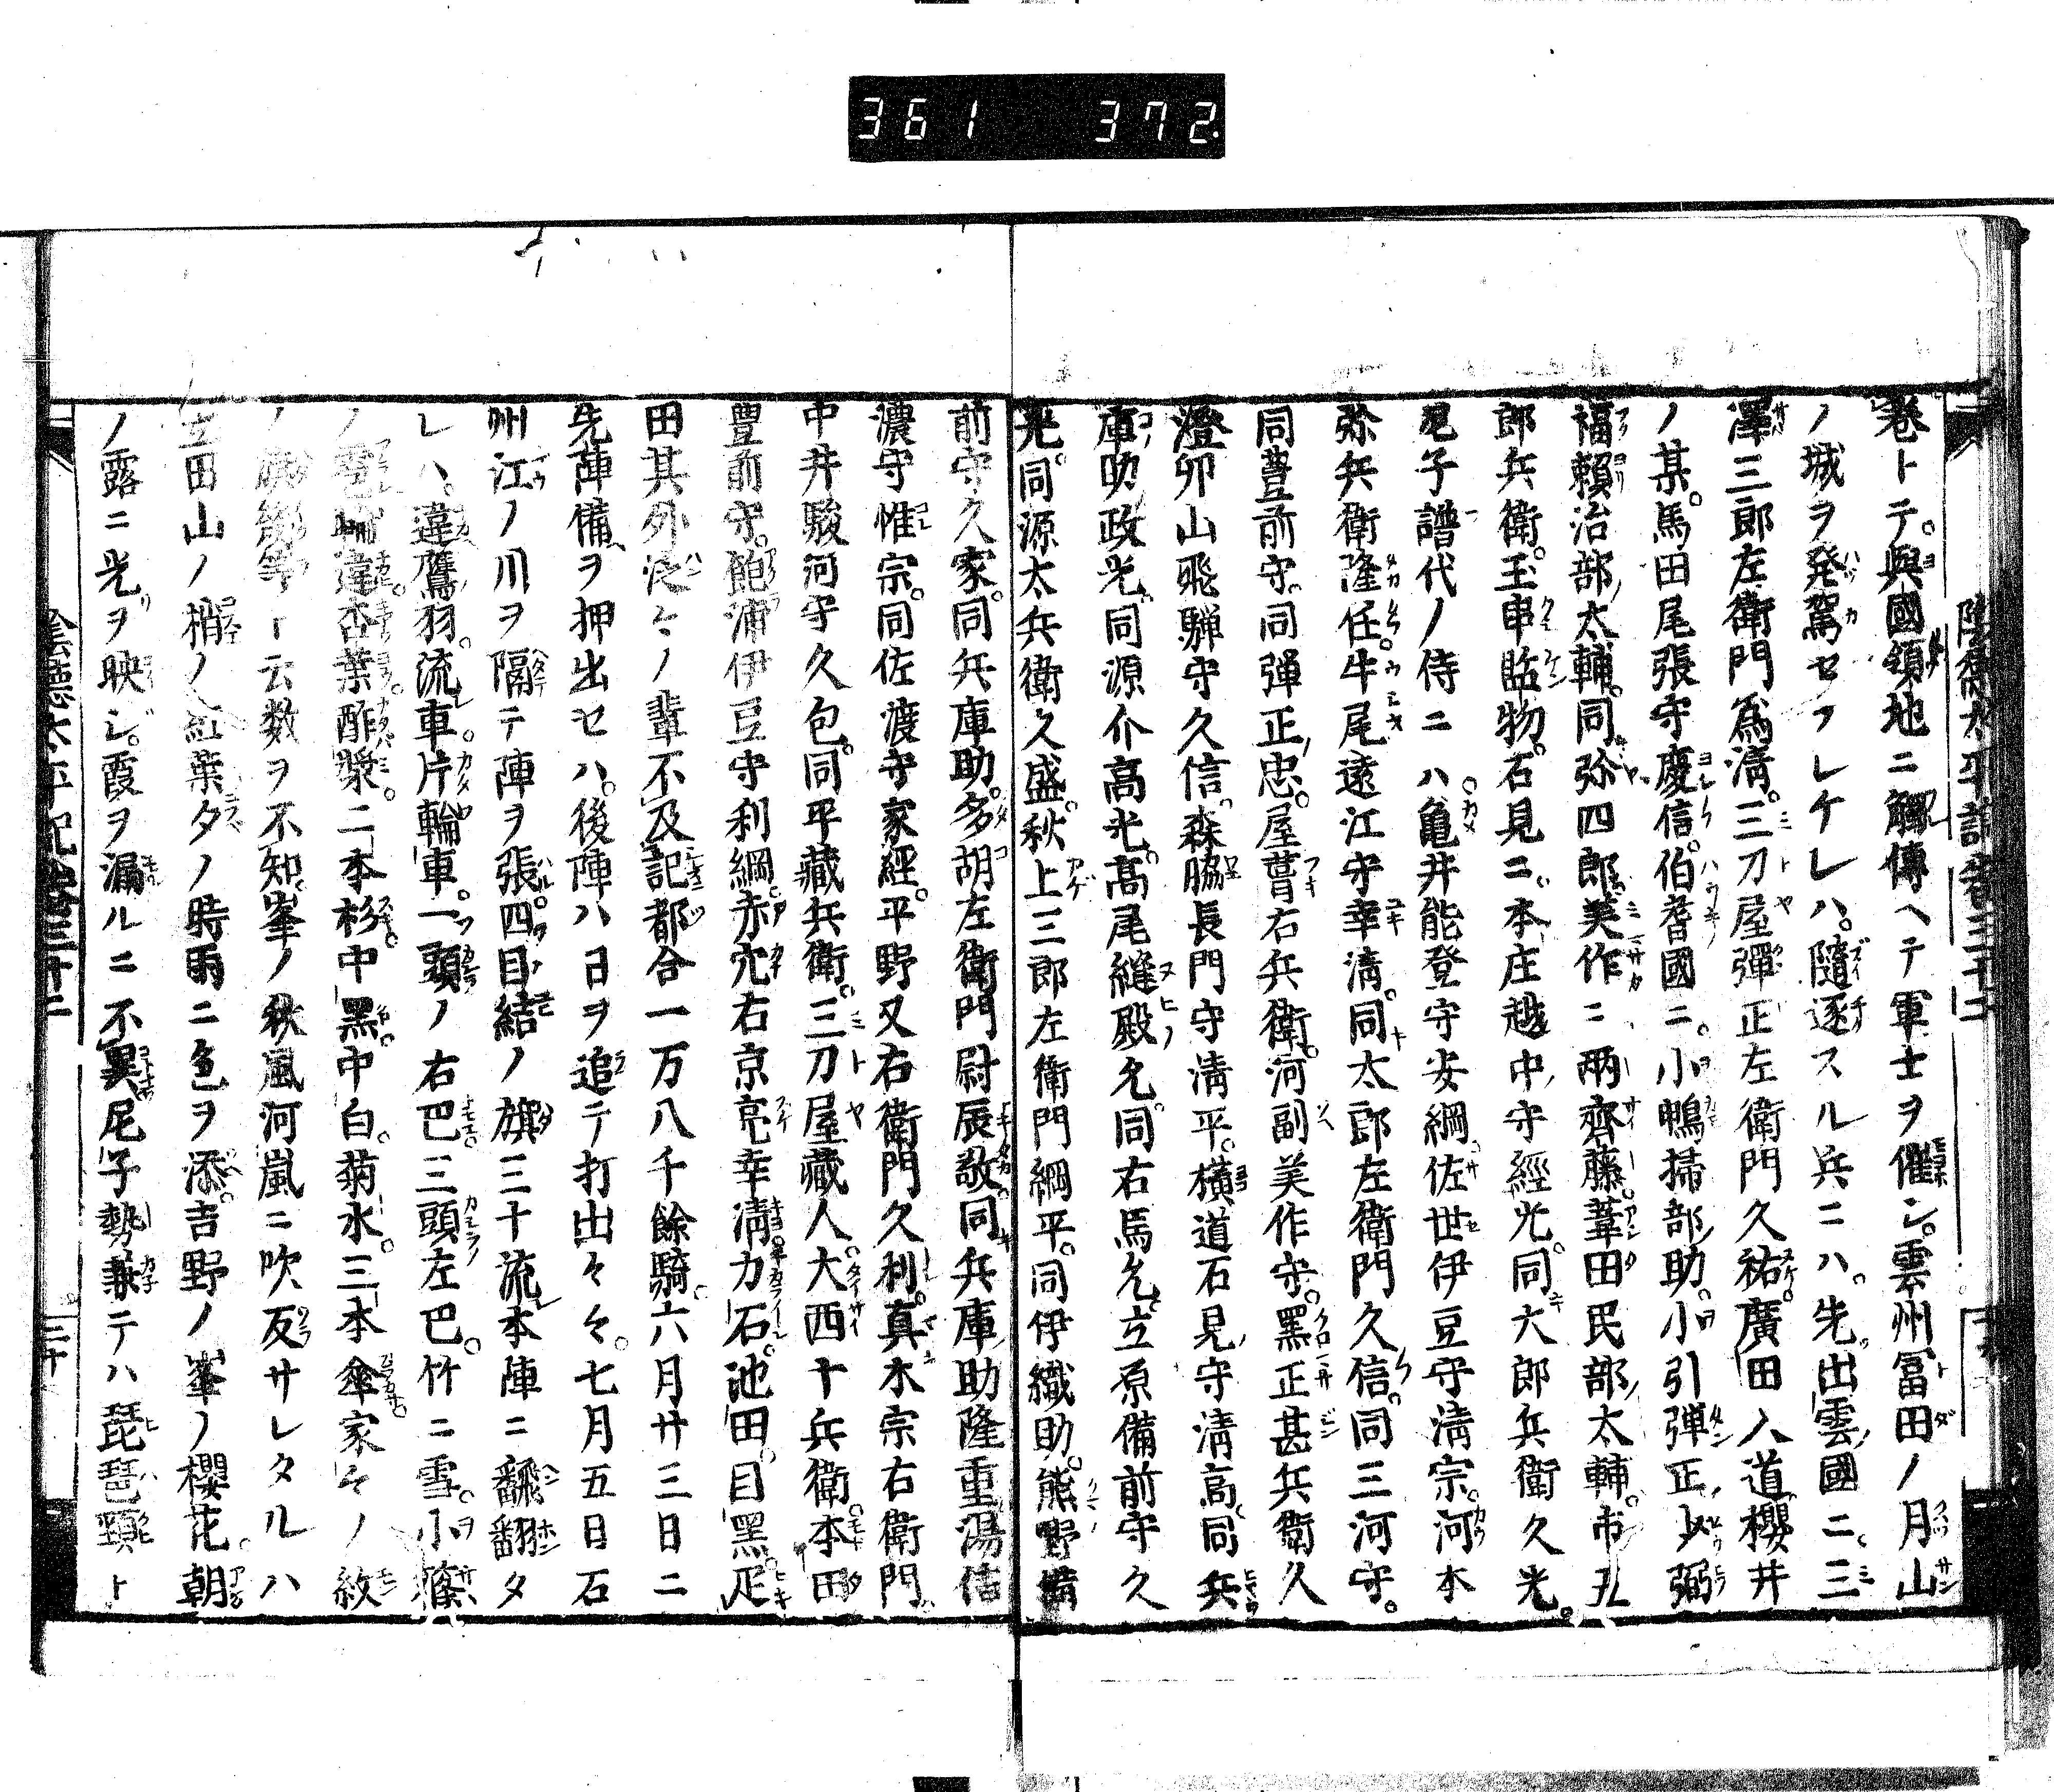 361 372.
巻トテ。與國領地ニ觸傳ヘテ軍士ヲ催シ。雲州冨田ノ月山
ノ城ヲ発駕セラレケレハ。隨逐スル兵ニハ。先出雲國ニ。三
澤三郎左衛門爲淸。三刀屋彈正左衛門久祐。廣田入道。櫻井
ノ某。馬田尾張守慶信。伯耆國ニ。小鴨掃部助。小引弾正少弼
福賴治部太輔。同弥四郎。美作ニ。兩齊藤。葦田民部太輔。市五
郎兵衛。玉串監物。石見ニ。本庄越中守經光。同大郎兵衛久光。
尼子譜代ノ侍ニハ。亀井能登守安綱。佐世伊豆守淸宗。河本
弥兵衛隆任。牛尾遠江守幸淸。同太郎左衛門久信。同三河守。
同豊前守。同彈正忠。屋葺右兵衛。河副美作守。黒正甚兵衛久
澄。卯山飛騨守久信。森脇長門守淸平。横道石見守淸高。同兵
庫助政光。同源介高光。髙尾縫殿允。同右馬允。立原備前守久
光。同源太兵衛久盛。秋上三郎左衛門綱平。同伊織助。熊野備
前守久家。同兵庫助。多胡左衛門尉辰敬。同兵庫助隆重。湯信
濃守惟宗。同佐渡守家經。平野又右衛門久利。真木宗右衛門。
中井駿河守久包。同平藏兵衛。三刀屋藏人。大西十兵衛。本田
豊前守。飽浦伊豆守利綱。赤穴右京亮幸淸。力石。池田。目黑。疋
田其外泛々ノ輩不及記都合一万八千餘騎。六月廿三日ニ
先陣備ヲ押出セハ。後陣ハ日ヲ追テ打出々々。七月五日石
州江ノ川ヲ隔テ陣ヲ張。四目結ノ旗三十流本陣ニ飜翻タ
レハ。違鷹羽。流車。片輪車。一頭ノ右巴。三頭左巴。竹ニ雪。小篠
違。杏葉。酢漿。二本杉。中黒。中白。菊水。三本傘。家々ノ紋
等ト云数ヲ不知。峯ノ秋風河嵐ニ吹反サレタルハ
立田山ノ梢ノ紅葉夕ノ時雨ニ色ヲ添。吉野ノ峯ノ櫻花。朝
ノ露ニ光ヲ映シ。霞ヲ漏ルニ不異尾子勢兼テハ琵琶頸ト
陰德太平記卷三十二
二十